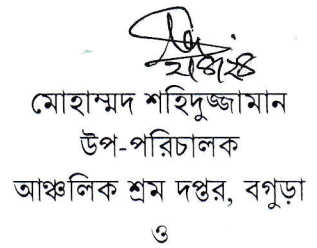 মোহাম্মদ শহিদুজ্জামান
উপ-পরিচালক
আঞ্চলিক শ্রম দপ্তর, বগুড়া
ও